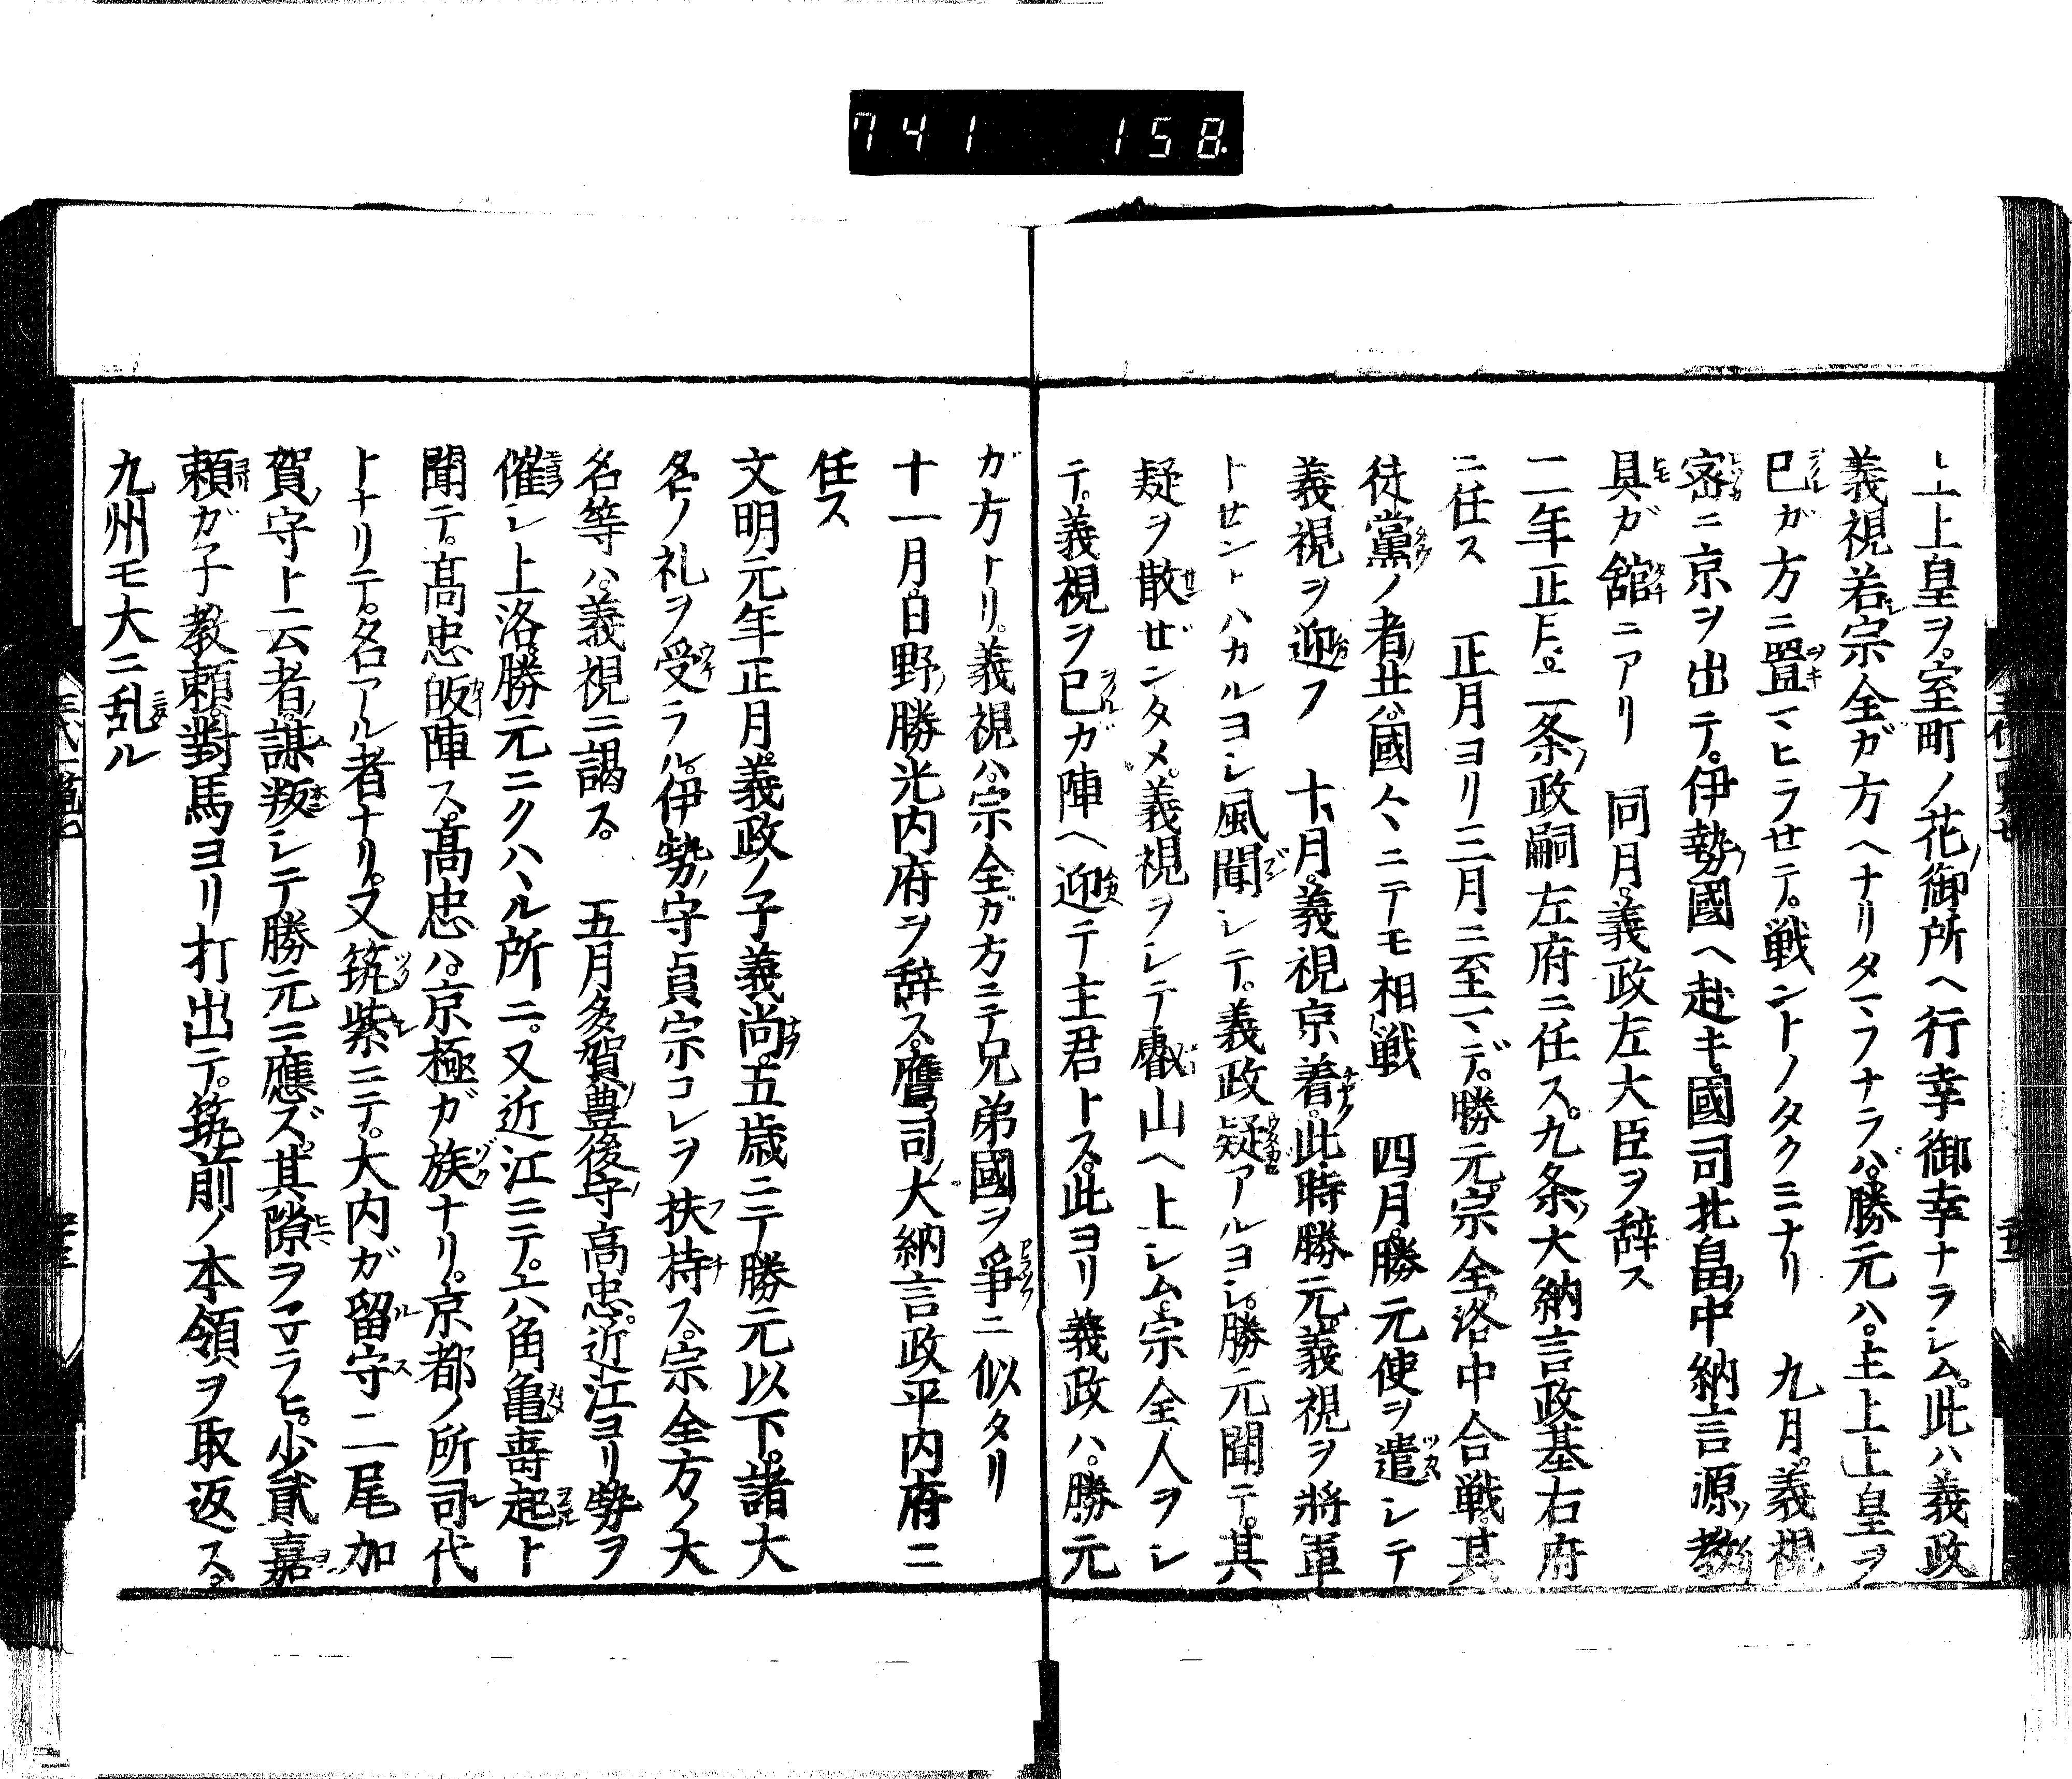 741 158
上上皇ヲ。室町ノ花御所ヘ行幸御幸ナラシム。此ハ義政
義視若宗全ガ方ヘナリタマフナラバ。勝元ハ。主上上皇ヲ
己ガ方ニ置マヒラセテ。戦ントノタクミナリ 九月。義視
密ニ京ヲ出テ。伊勢國ヘ赴キ。國司北畠中納言源教
具ガ舘ニアリ 同月。義政左大臣ヲ辞ス
二年正月。二条政嗣左府ニ任ス。九条大納言政基右府
ニ任ス 正月ヨリ三月ニ至マデ。勝元。宗全。洛中合戦。其
徒黨ノ者共ハ。國々ニテモ相戦 四月。勝元使ヲ遣シテ
義視ヲ迎フ 十月。義視京着。此時勝元。義視ヲ將軍
トセントハカルヨシ風聞シテ。義政疑アルヨシ。勝元聞テ。其
疑ヲ散ゼンタメ。義視ヲシテ叡山ヘ上シム。宗全人ヲシ
テ。義視ヲ己ガ陣ヘ迎テ主君トス。此ヨリ義政ハ。勝元
ガ方トリ。義視ハ。宗全ガ方ニテ兄弟國ヲ爭ニ似タリ
十一月。日野勝光内府ヲ辞ス。鷹司大納言政平内府ニ
任ス
文明元年正月。義政ノ子義尚。五歳ニテ勝元以下。諸大
名ノ礼ヲ受ラル。伊勢守貞宗コレヲ扶持ス。宗全方ノ大
名等ハ。義視ニ謁ス。 五月多賀豊後守高忠。近江ヨリ勢ヲ
催シ上洛。勝元ニクハヽル所ニ。又近江ニテ。六角亀壽起ト
聞テ。髙忠皈陣ス。髙忠ハ。京極ガ族ナリ。京都ノ所司代
トナリテ。名アル者ナリ。又筑紫ニテ。大内ガ留守ニ尾加
賀守ト云者。謀叛シテ勝元ニ應ズ。其隙ヲ子ラヒ。少貳嘉
頼ガ子教頼。對馬ヨリ打出テ。筑前ノ本領ヲ取返ス。
九州モ大ニ乱ル